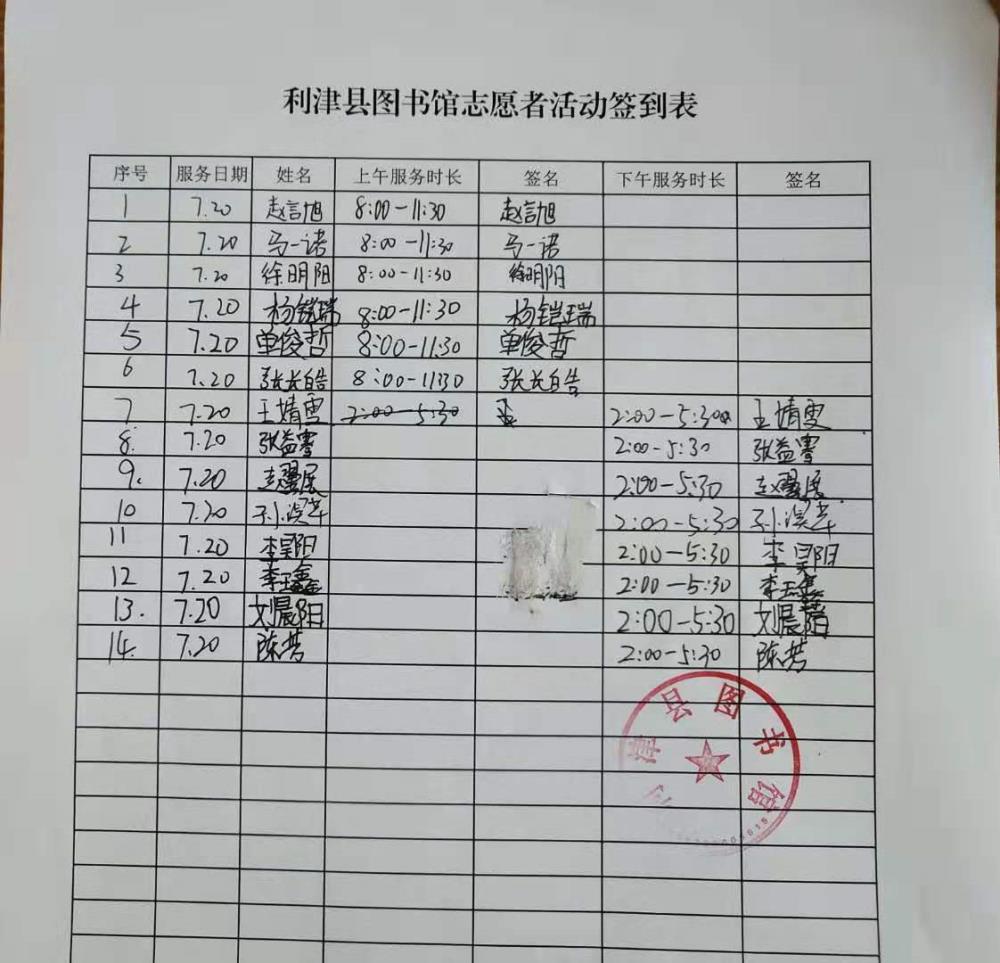 利津县图书馆志愿者活动签到表
序号 服务日期 姓名 上午服务时长 签名 下午服务时长 签名
1 7.20 赵言旭 8:00-11:30 赵言旭
2 7.20 马一诺 8:00-11:30 马一诺
3 7.20 徐明阳 8:00-11:30 徐明阳
4 7.20 杨铠瑞 8:00-11:30 杨铠瑞
5 7.20 单俊哲 8:00-11:30 单俊哲
6 7.20 张长皓 8:00-11:30 张长皓
7 7.20 王婧雯 2:00-5:30 2:00-5:30 王婧雯
8. 7.20 张益 2:00-5:30 张益
9. 7.20 赵 2:00-5:30 赵
10 7.20 孙 2:00-5:30 孙
11 7.20 李昊阳 2:00-5:30 李昊阳
12 7.20 李玉鑫 2:00-5:30 李玉鑫
13. 7.20 刘晨阳 2:00-5:30 刘晨阳
14. 7.20 陈芳 2:00-5:30 陈芳
津县图书馆